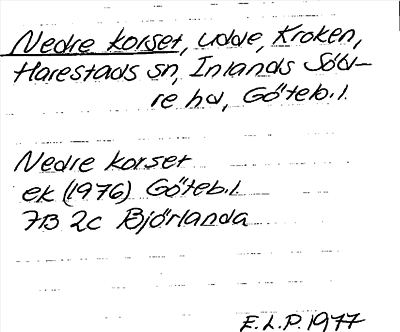 Nedre korset, udde, Kroken,
Harestads sn, Inlands Söd-
re hd, Göteb.l.
Nedre korset
ek (1976) Göteb.l.
7B 2c Björlanda
F.L.P. 1977